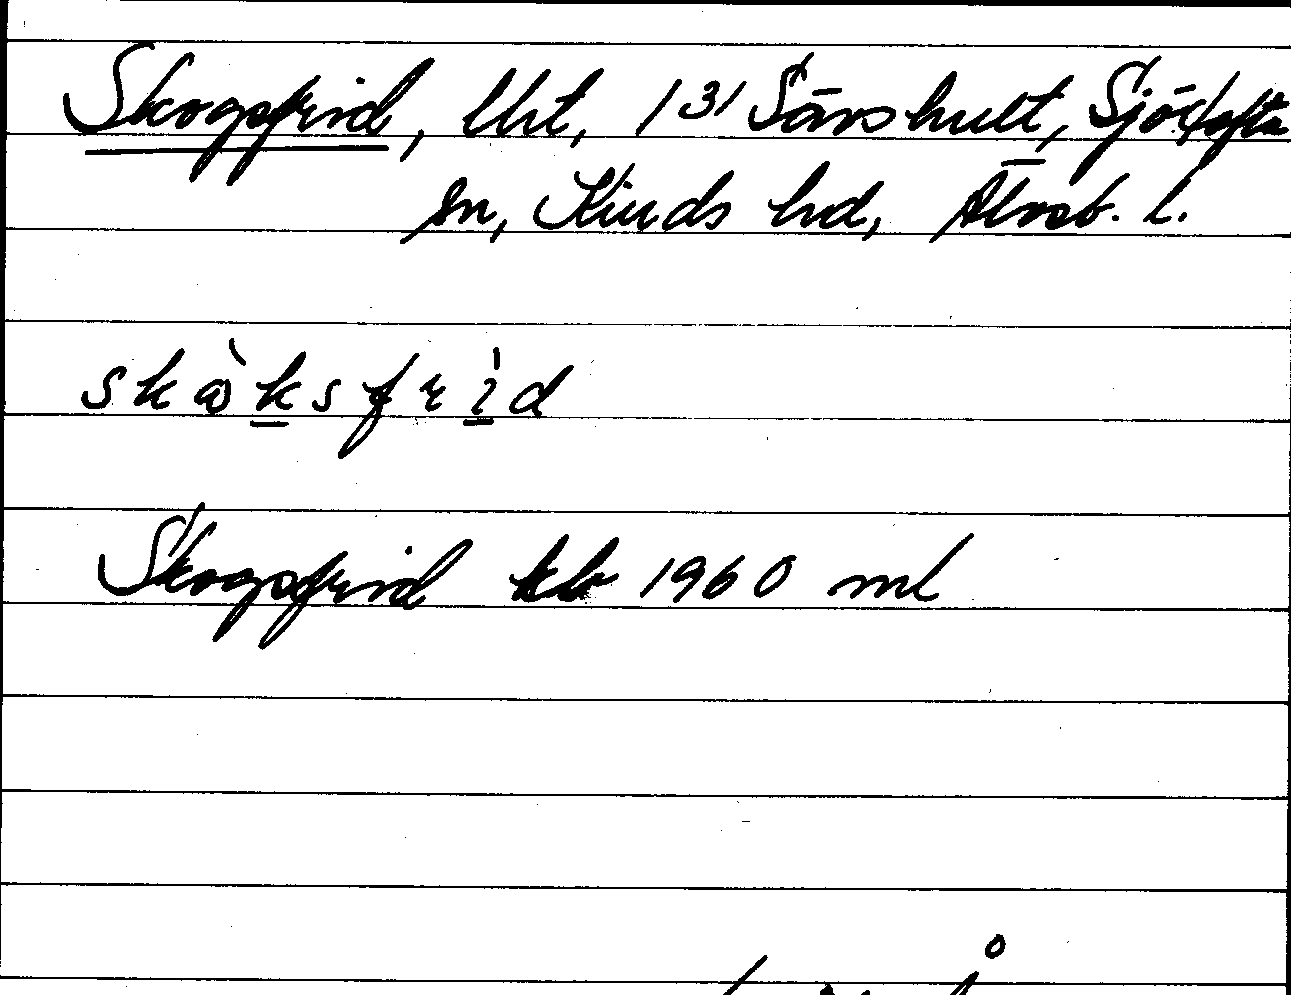 Skogsfrid, lht, 1³¹ Särshult, Sjötofta
sn, Kinds hd, Älvsb. l.
skὼksfrìd
Skogsfrid kb 1960 ml